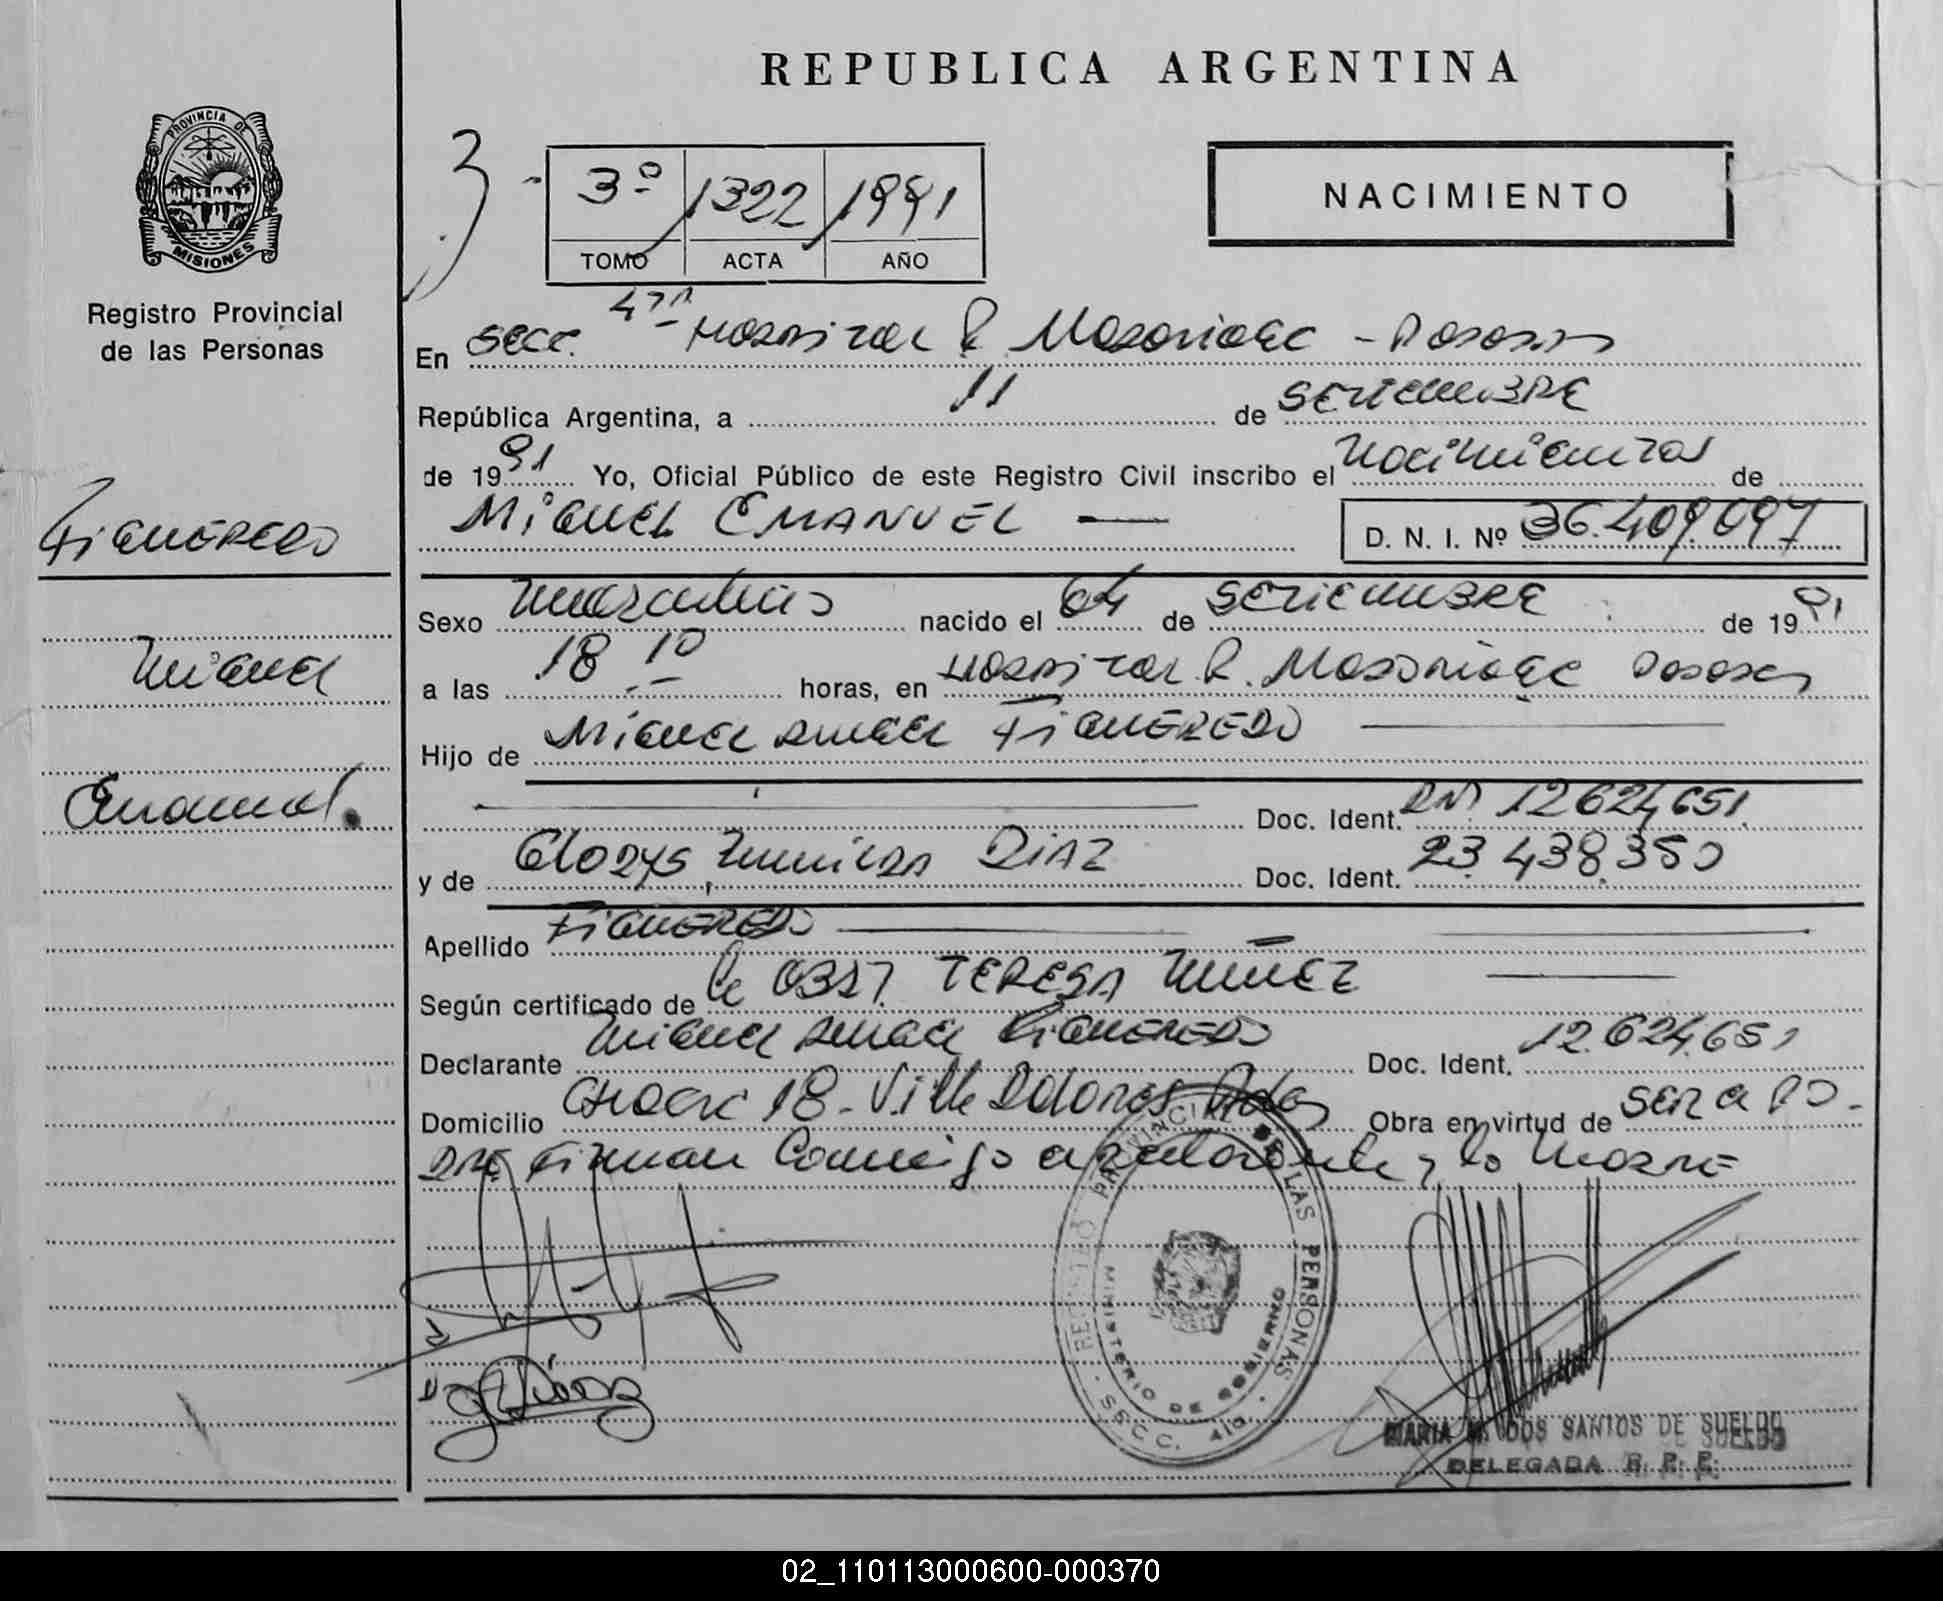 REPUBLICA ARGENTINA
PROVINCIA DE
MISIONES
Registro Provincial
de las Personas
3º 1322 1991
TOMO ACTA AÑO
NACIMIENTO
En Secc. 4ta Hospital R. Madariaga - Posadas
República Argentina, a 11 de SETIEMBRE
de 1991 Yo, Oficial Público de este Registro Civil inscribo el Nacimiento de
MIGUEL EMANUEL D. N. I. Nº 36.409.097
FIGUEREDO
Miguel
Emanuel.
Sexo Masculino nacido el 04 de SETIEMBRE de 1991
a las 18 10 horas, en Hospital R. Madariaga Posadas
Hijo de Miguel Angel FIGUEREDO
Doc. Ident. DNI 12624651
y de Gladys DIAZ Doc. Ident. 23.438.350
Apellido FIGUEREDO
Según certificado de la OBST. TERESA NUÑEZ
Declarante Miguel Angel FIGUEREDO Doc. Ident. 12.624.651
Domicilio 18 - Villa Dolores Pdas Obra en virtud de ser el PA-
DRE Firman Conmigo el declarante y la MADRE
REGISTRO PROVINCIAL DE LAS PERSONAS
MINISTERIO DE GOBIERNO
SECC. 4ta
MARIA DOS SANTOS DE SUELDO
DELEGADA R. P. P.
02_110113000600-000370